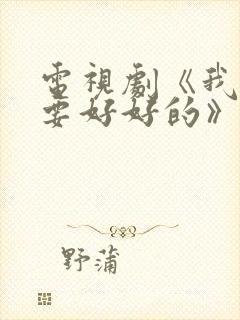 電視劇《我
要好好的》
野蒲